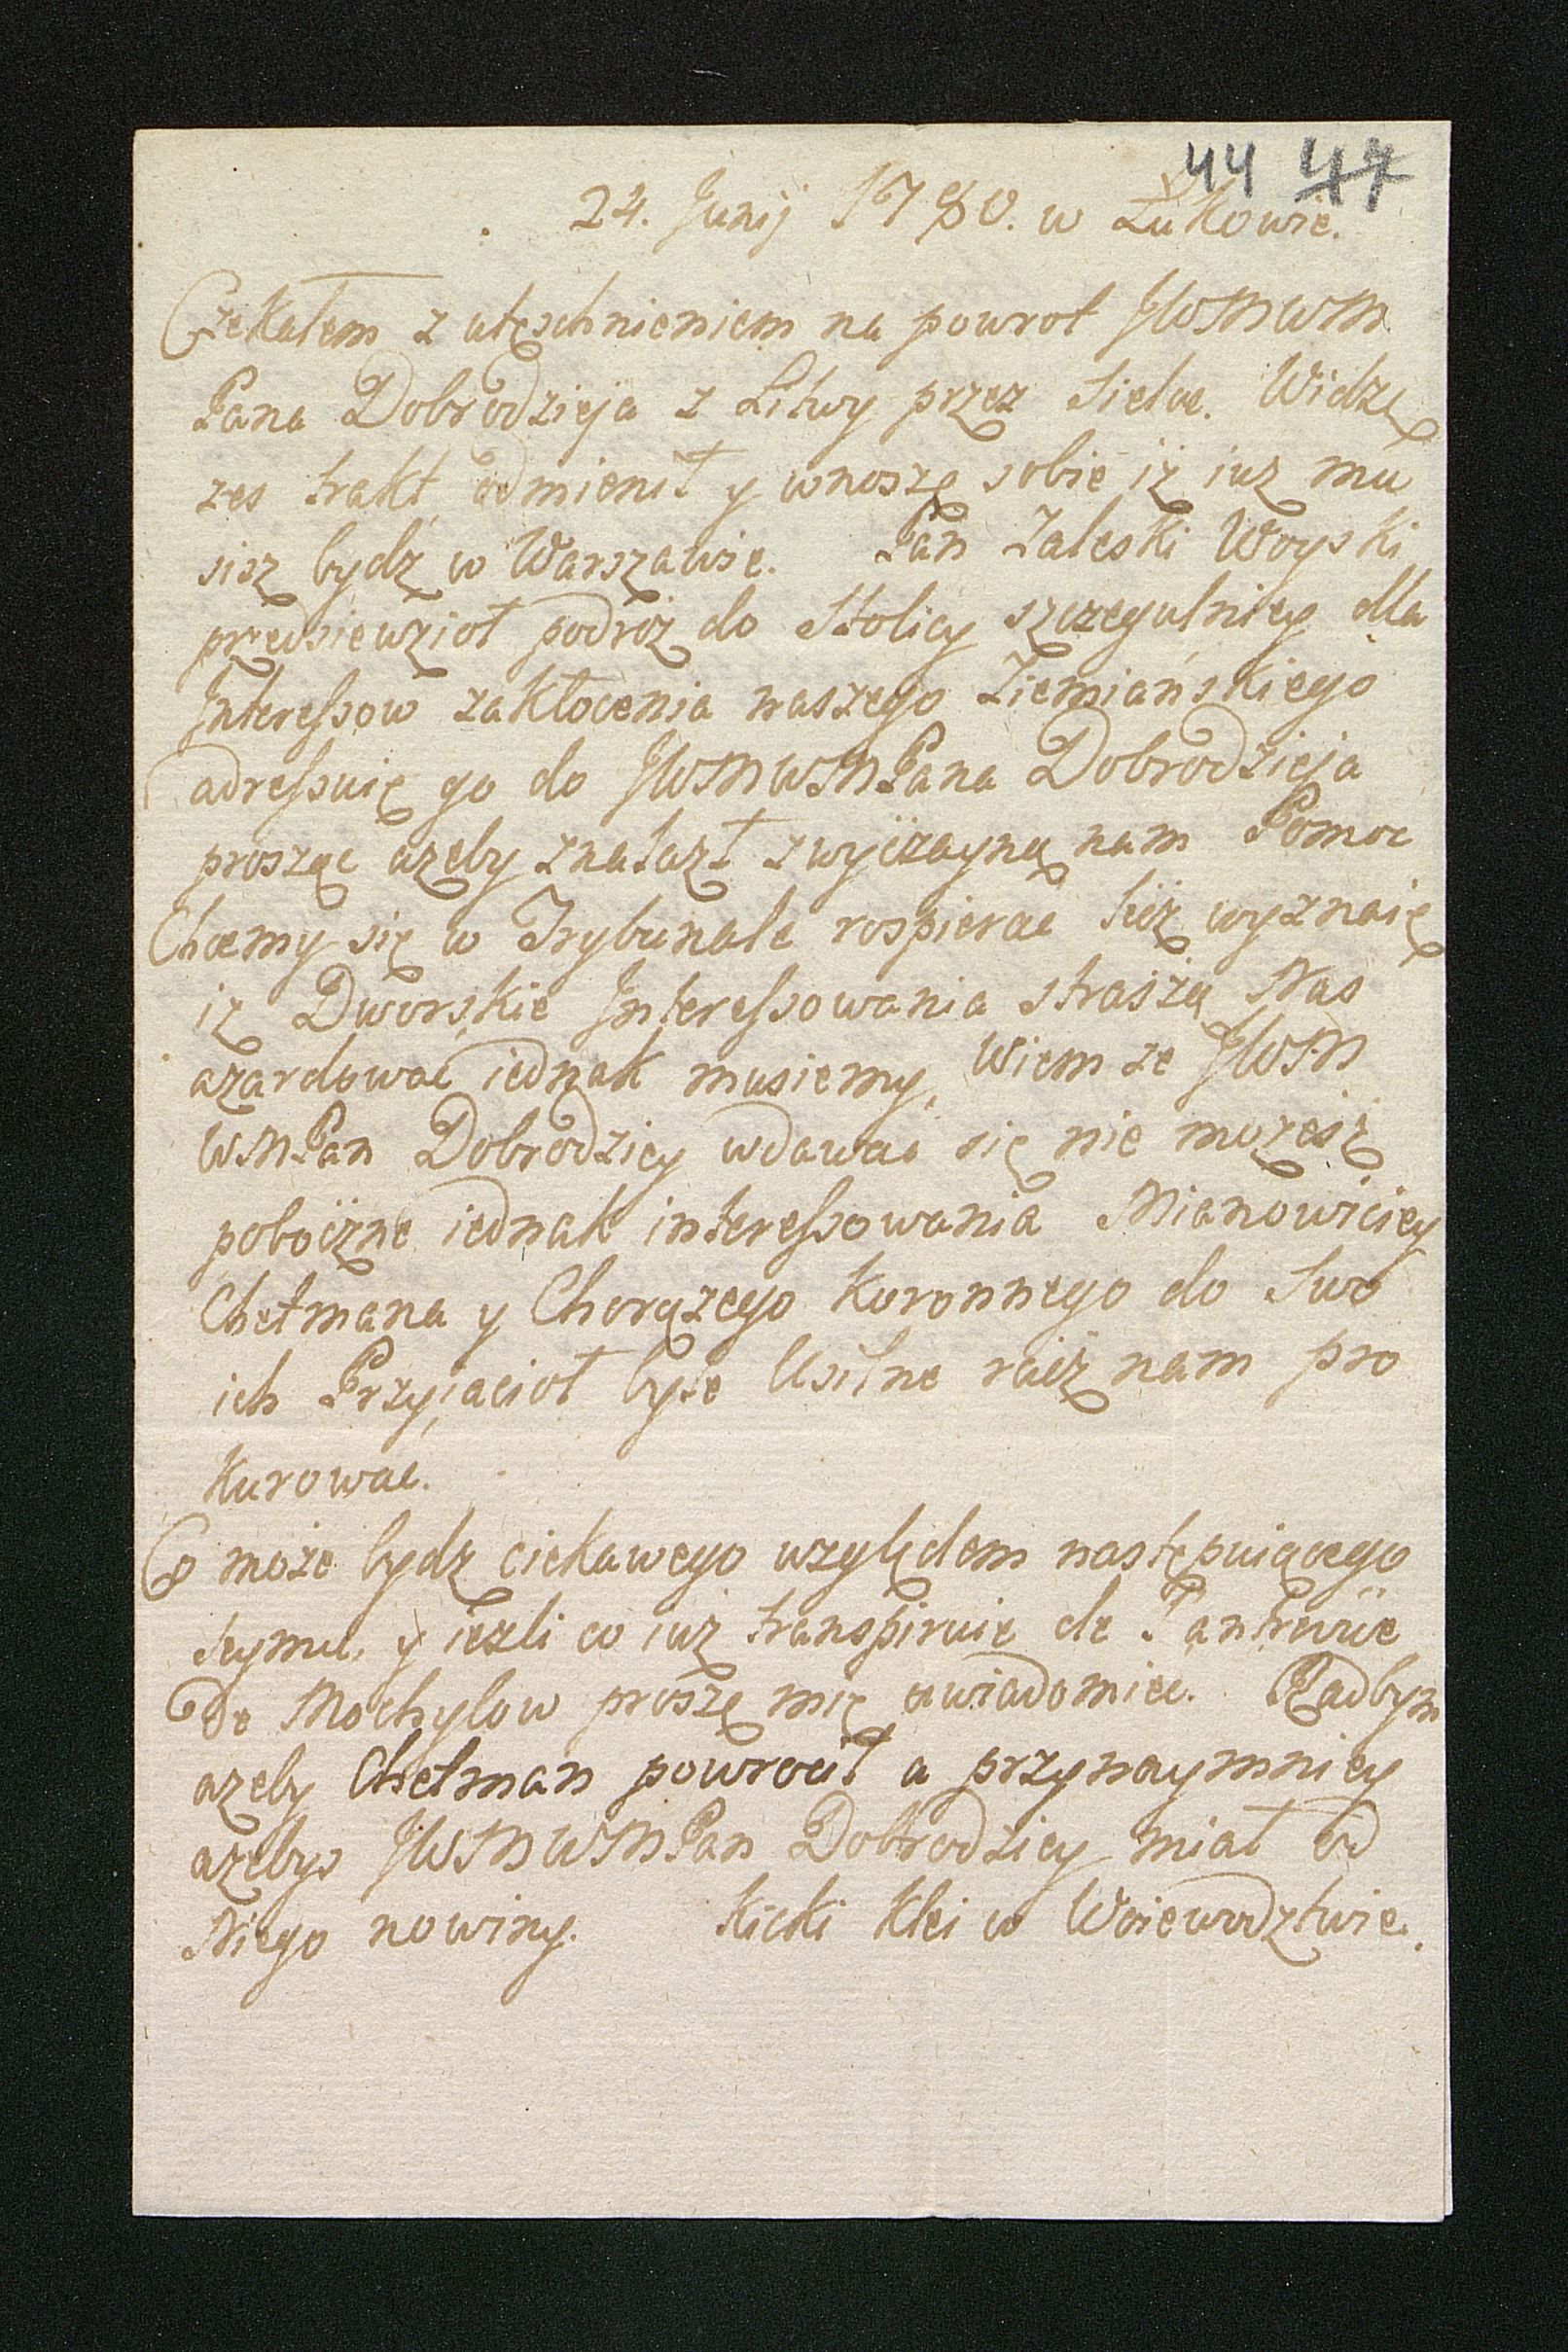 44 47
24. Junij 1780. w Łukowie.
Czekałem z utęschnieniem na powrot JWMWM
Pana Dobrodzieja z Litwy przez Sielce. Widzę
zes trakt odmienił y wnoszę sobie iż iuz mu
sisz bydz w Warszawie. Pan Zaleski Woyski
przedsiewzioł podróż do Stolicy szczegulniey dla
Interessow zakłocenia naszego Ziemiańskiego
adressuię go do JWMWMPana Dobrodzieja
prosząc azeby znalazł zwyczayną nam Pomoc
Chcemy się w Trybunale rospierac lúż wyznaię
iz Dworskie Interessowania straszą Nas
azardowac iednak musiemy, Wiem ze JWM
WMPan Dobrodziey wdawac się nie możesz
poboczne iednak interessowania Mianowiciey
Chetmana y Chorązego Koronnego do Swo
ich Przyiacioł byle Usilne racz nam pro
kurowac.
Co może bydz ciekawego względem następuiącego
Seymu, y iezli co iuz transpiruie de
De Mochylow proszę mię uwiadomiec. Radbym
azeby Chetman powrocił a przynaymniey
azebys JWMWMPan Dobrodziey miał od
Niego nowiny. Kicki Klei w Woiewodztwie.